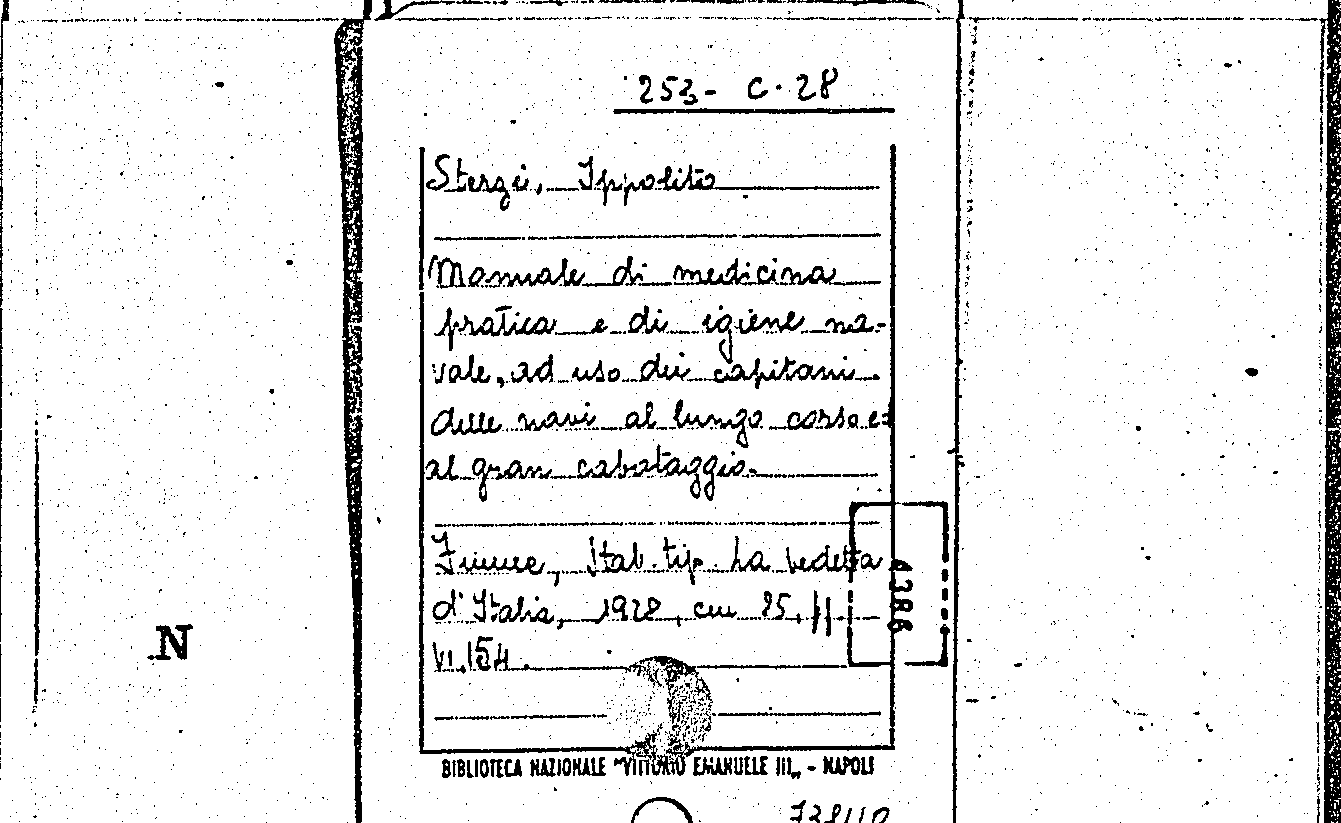 253- C. 28
Sterzi, Ippolito
Manuale di medicina
pratica e di igiene na-
vale, ad uso dei capitani
delle navi al lungo corso e
al gran cabotaggio.
Fiume, Stab. tip. La Vedetta
d'Italia, 1928, cm 25, pp.
VI. 154.
4386
N
BIBLIOTECA NAZIONALE "VITTORIO EMANUELE III„ - NAPOLI